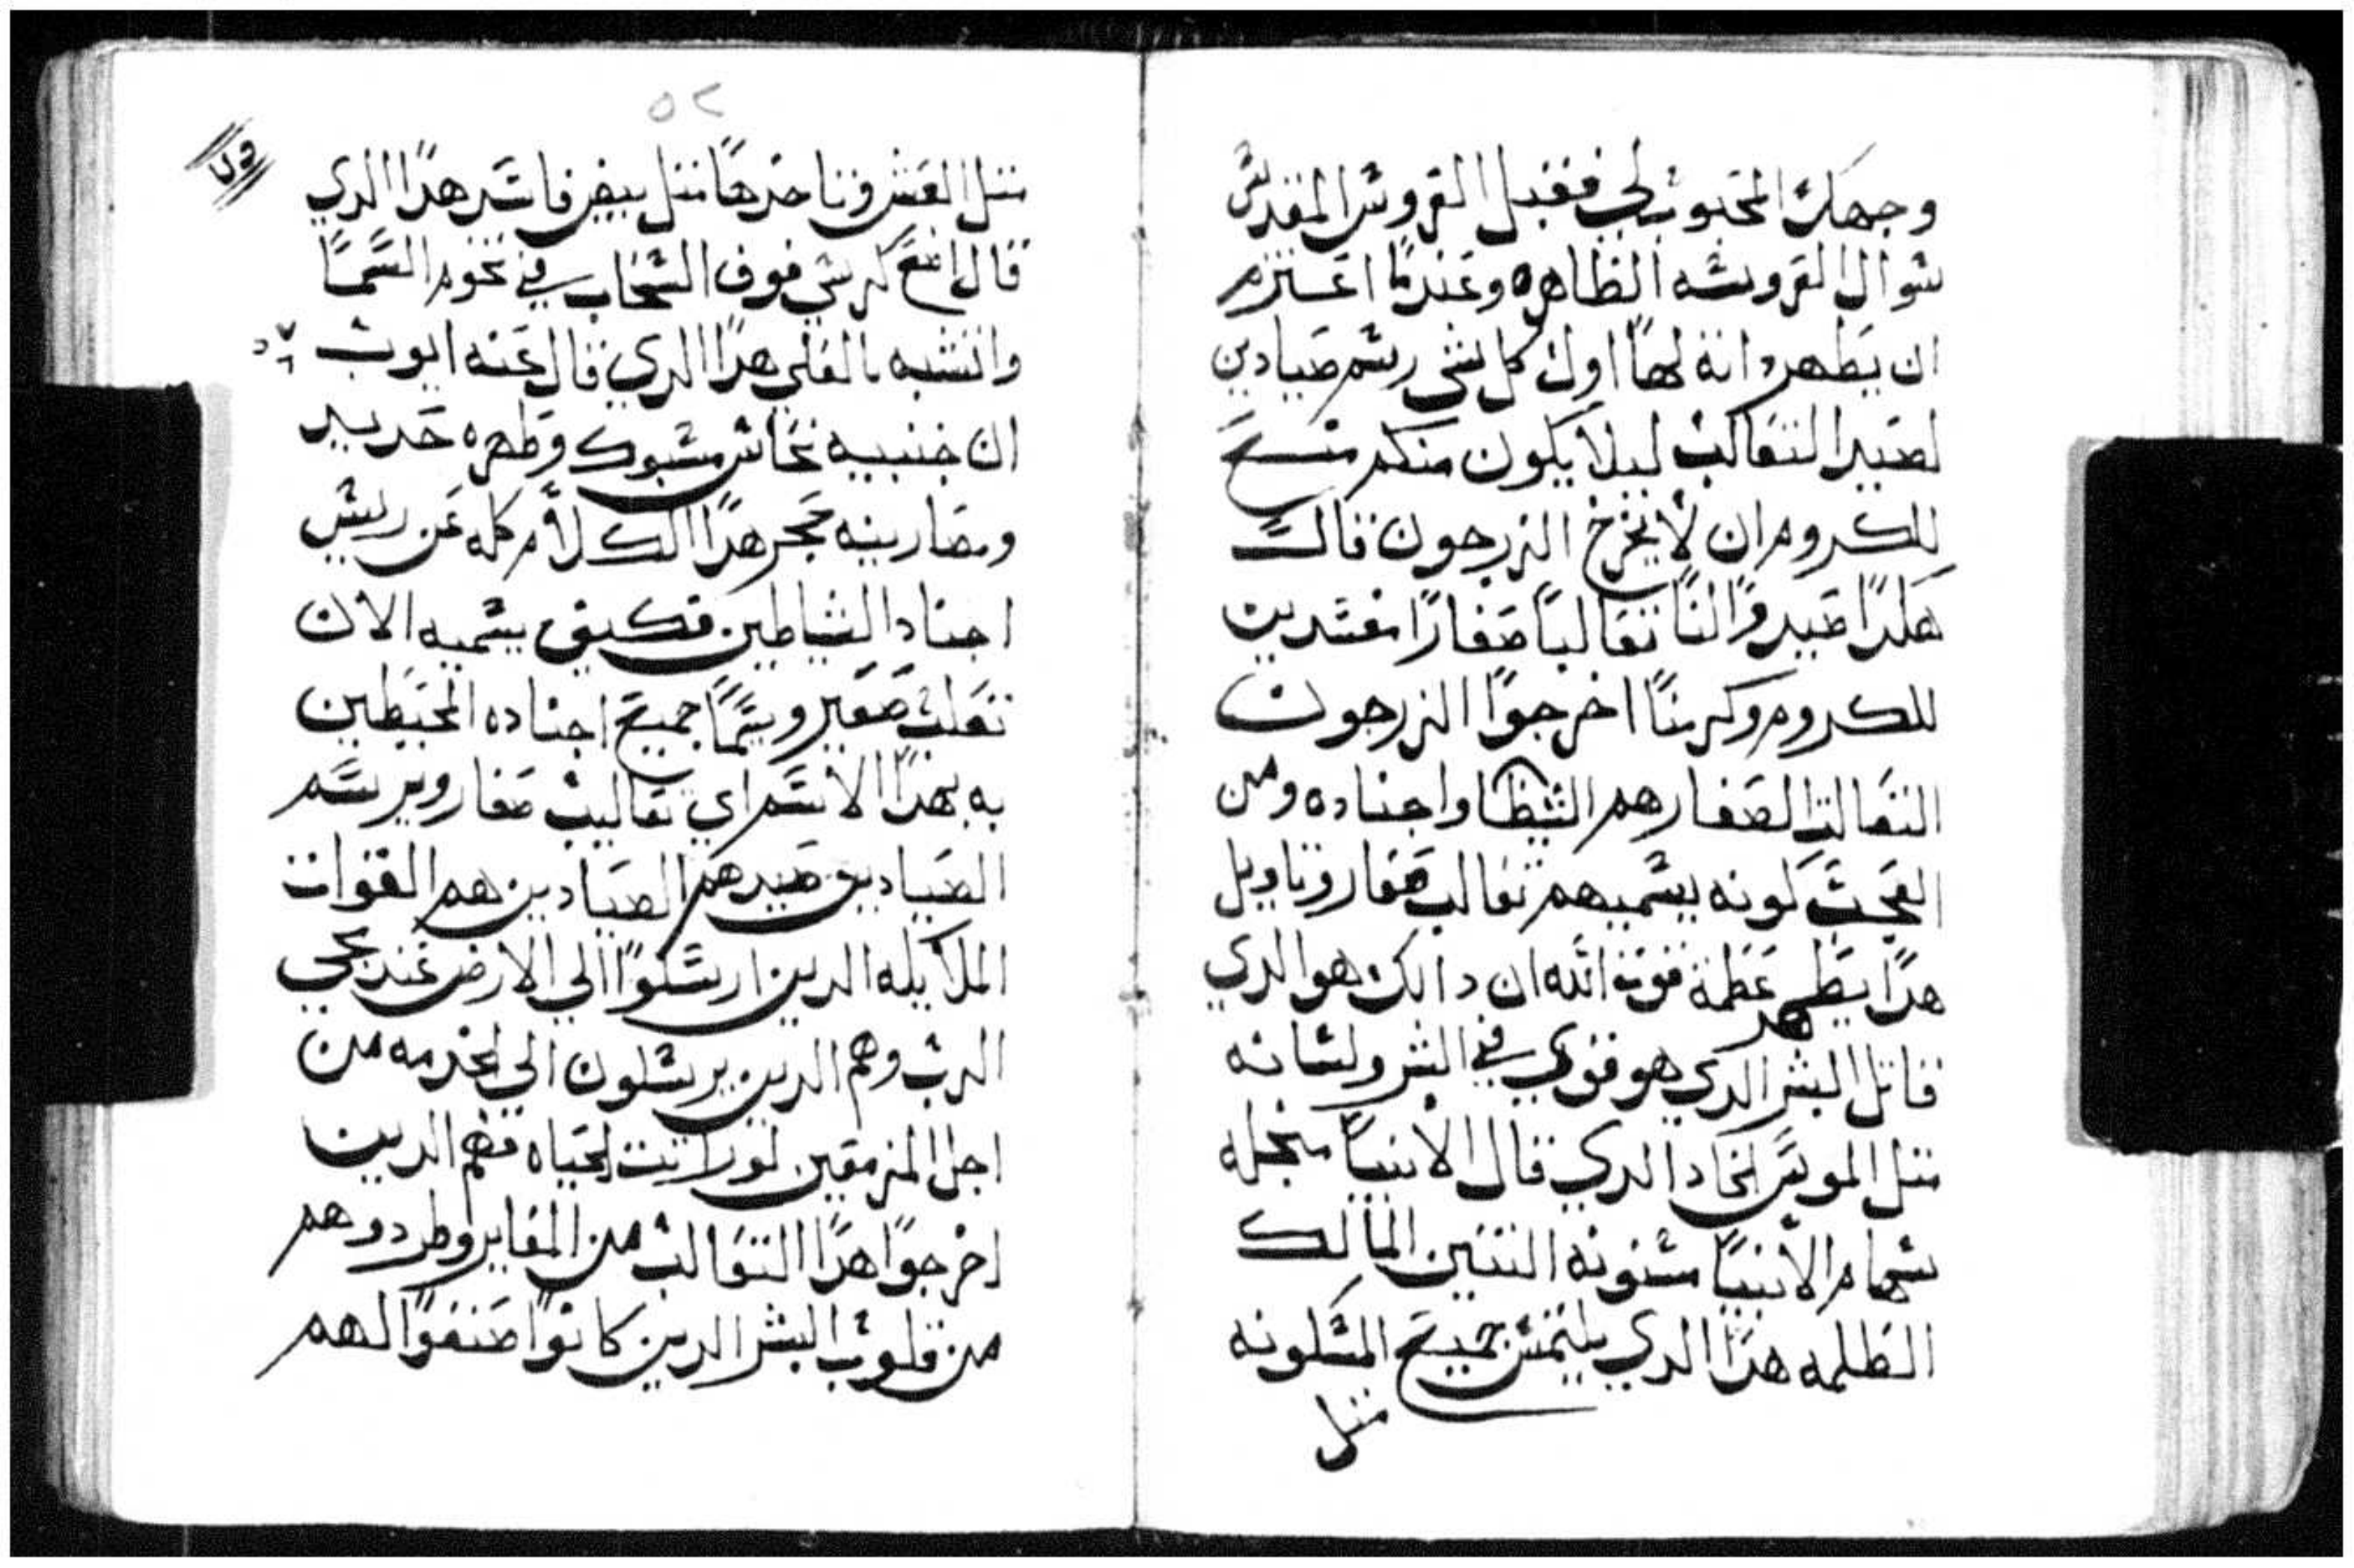 وجهك المحبوب لي فقبل القروش المقدش
شوال القروشه الظاهره وعندما اعتزم
ان يظهر دانه لها اول كل شي رشم صيادين
لصيد التعالب ليلا يكون منكم منسع
للكروم ان لا يخرج الزرجون قالت
هكدا صيدوا لنا تعالبا صغارا مفشدين
للكروم وكرمنا اخرجوا الزرجون
التعالب الصغار هم الشيطا واجناده ومن
العجب كونه يشميهم تعالب صغار وتاويل
هدا يظهر عظمة قوة الله ان دالك هو الدي
قاتل البشر الدي هو قوي في الشر ولشانه
متل الموش الحاد الدي قال الانبيا منجله
شهام الانبيا مشنونه التنين المالك
الظلمه هدا الدي يلتمش جميع المشكونه
متل
٥٢
متل العش وتاخدها متل بيض فاشد هدا الدي
قال اضع كرشي فوق الشحاب في نخوم السما
واتشبه بالعلي هدا الدي قال عنه ايوب
ان جنبيه نحاش مشبوك وظهره حديد
ومصارينه حجر هدا الكلام كله عن رييش
اجناد الشياطين فكيف يشميه الان
تعلب صغير ويشما جميع اجناده المحيطين
به بهدا الاشم اي تعاليب صغار ويرشم
الصيادين صيدهم الصيادين هم القوات
الملاييكه الدين ارشلوا الي الارض عند مجي
الرب وهم الدين يرشلون الي الخدمه من
اجل المزمعين لوراتت الحياه فهم الدين
اخرجوا هدا التعالب من المغاير وطردوهم
من قلوب البشر الدين كانوا صنعوا لهم